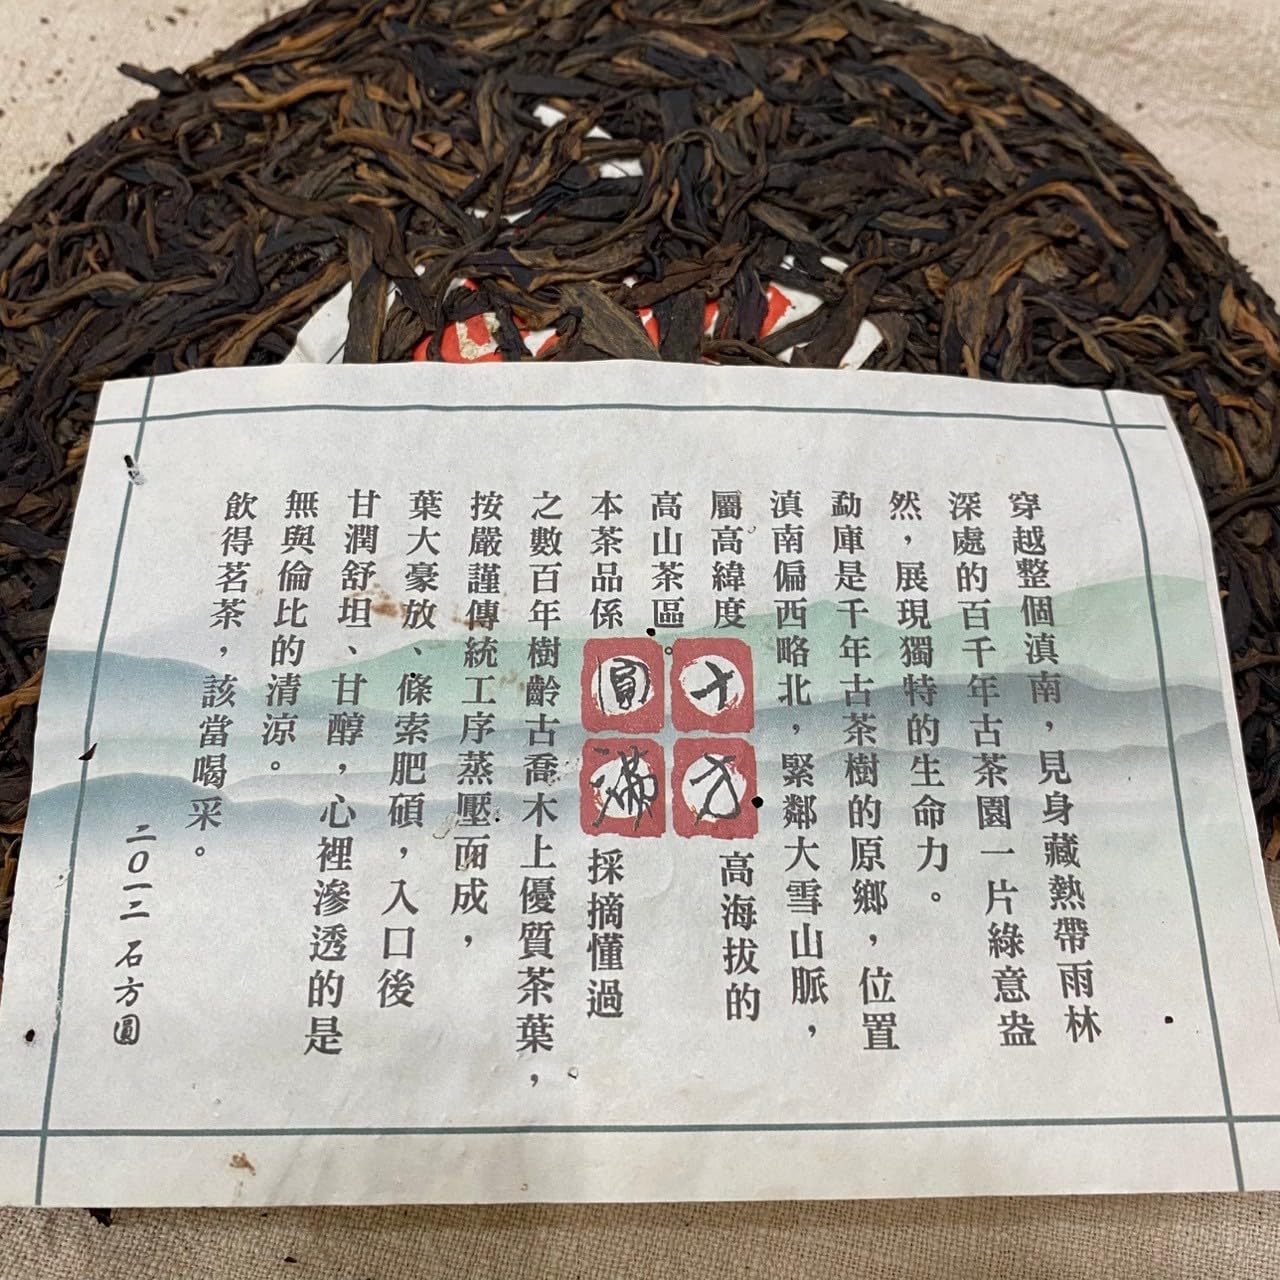 穿越整個滇南，見身藏熱帶雨林
深處的百千年古茶園一片綠意盎
然，展現獨特的生命力。
勐庫是千年古茶樹的原鄉，位置
滇南偏西略北，緊鄰大雪山脈，
屬高緯度高海拔的
高山茶區。
十方
圓滿
本茶品係採摘懂過
之數百年樹齡古喬木上優質茶葉，
按嚴謹傳統工序蒸壓面成，
葉大豪放、條索肥碩，入口後
甘潤舒坦、甘醇，心裡滲透的是
無與倫比的清涼。
飲得茗茶，該當喝采。
二〇一二 石方圓